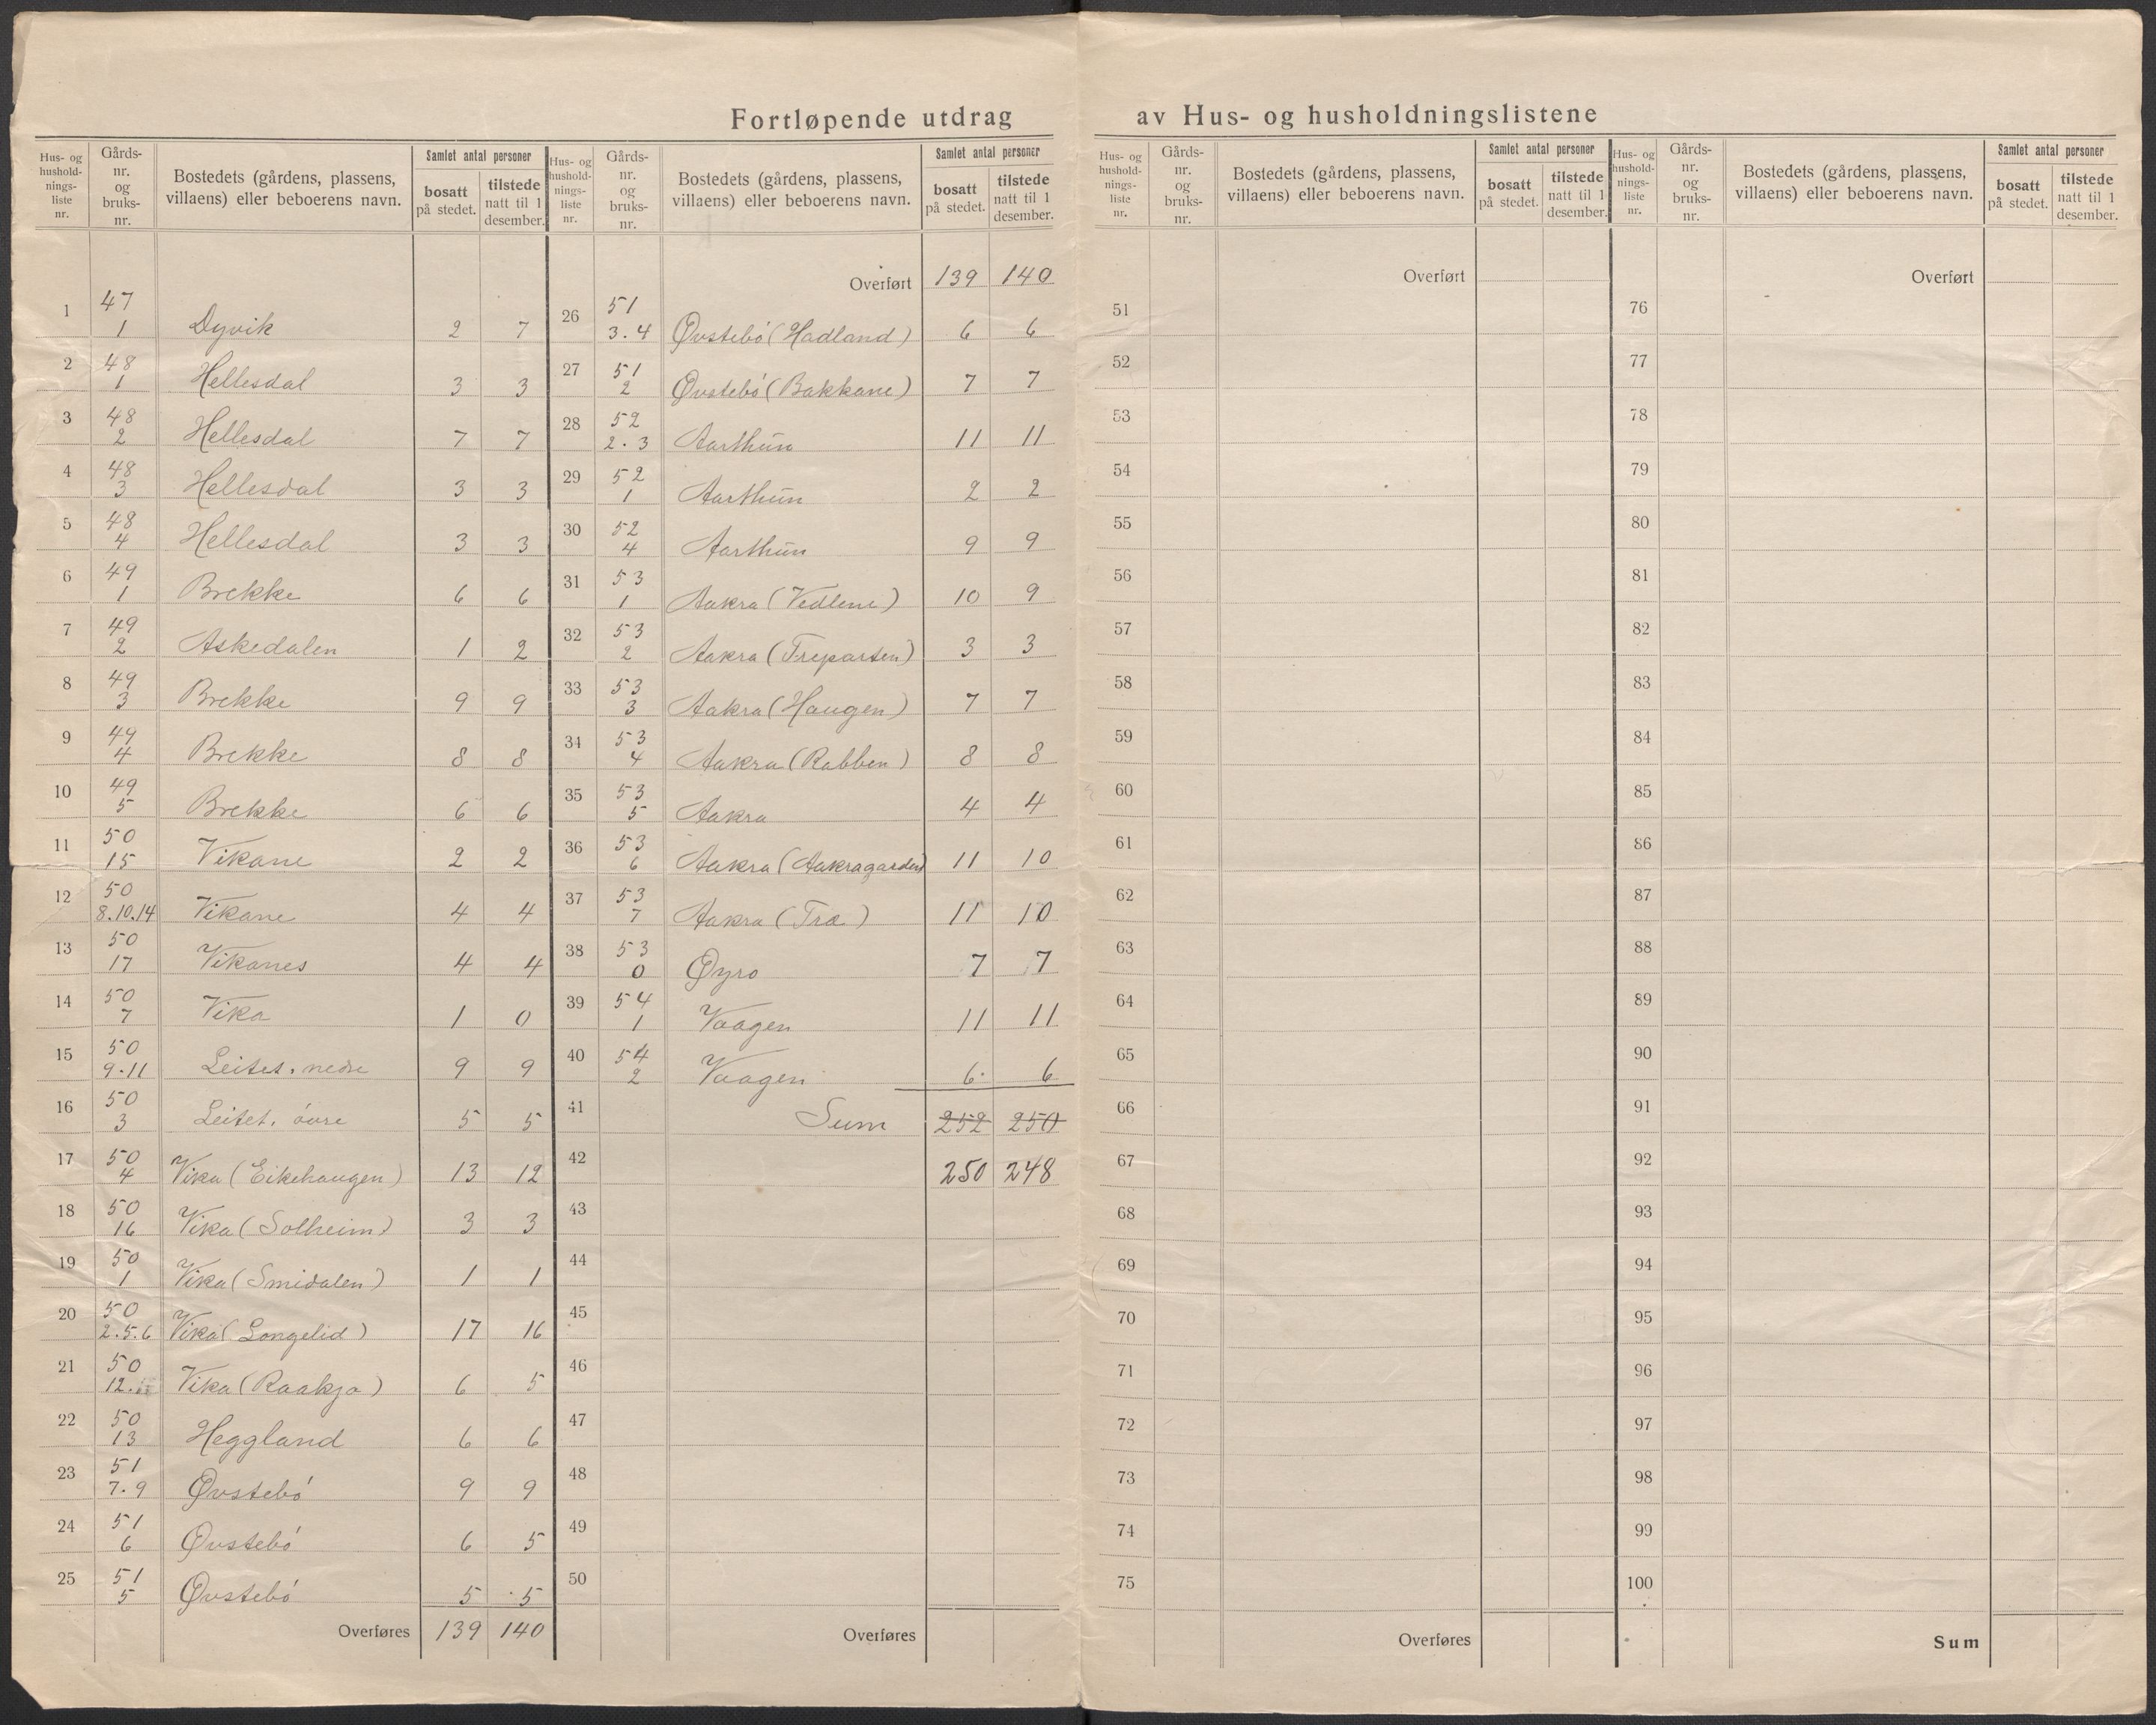 Fortløpende utdrag av Hus- og husholdningslistene
Hus- og hushold- nings- liste nr. | Gårds- nr. og bruks- nr. | Bostedets (gårdens, plassens, villaens) eller beboerens navn. | Samlet antal personer | bosatt på stedet. | tilstede natt til 1 desember.
1 | 47 1 | Dyvik | 2 | 7
2 | 48 1 | Hellesdal | 3 | 3
3 | 48 2 | Hellesdal | 7 | 7
4 | 48 3 | Hellesdal | 3 | 3
5 | 48 4 | Hellesdal | 3 | 3
6 | 49 1 | Brekke | 6 | 6
7 | 49 2 | Askedalen | 1 | 2
8 | 49 3 | Brekke | 9 | 9
9 | 49 4 | Brekke | 8 | 8
10 | 49 5 | Brekke | 6 | 6
11 | 50 15 | Vikane | 2 | 2
12 | 50 8.10.14 | Vikane | 4 | 4
13 | 50 17 | Vikanes | 4 | 4
14 | 50 7 | Vika | 1 | 0
15 | 50 9.11 | Leitet. nedre | 9 | 9
16 | 50 3 | Leitet. óvre | 5 | 5
17 | 50 4 | Vika (Eikehaugen) | 13 | 12
18 | 50 16 | Vika (Solheim) | 3 | 3
19 | 50 1 | Vika (Smidalen) | 1 | 1
20 | 50 2.5.6 | Vika (Longelid) | 17 | 16
21 | 50 12. | Vika (Raakja) | 6 | 5
22 | 50 13 | Heggland | 6 | 6
23 | 51 7.9 | Øvstebó | 9 | 9
24 | 51 6 | Øvstebó | 6 | 5
25 | 51 5 | Øvstebó | 5 | 5
Overføres | 139 | 140
Hus- og hushold- nings- liste nr. | Gårds- nr. og bruks- nr. | Bostedets (gårdens, plassens, villaens) eller beboerens navn. | Samlet antal personer | bosatt på stedet. | tilstede natt til 1 desember.
Overført | 139 | 140
26 | 51 3.4 | Øvstebó (Hadland) | 6 | 6
27 | 51 2 | Øvstebó (Bakkane) | 7 | 7
28 | 52 2.3 | Aarthun | 11 | 11
29 | 52 1 | Aarthun | 2 | 2
30 | 52 4 | Aarthun | 9 | 9
31 | 53 1 | Aakra (Vedlene) | 10 | 9
32 | 53 2 | Aakra (Treparten) | 3 | 3
33 | 53 3 | Aakra (Haugen) | 7 | 7
34 | 53 4 | Aakra (Rabben) | 8 | 8
35 | 53 5 | Aakra | 4 | 4
36 | 53 6 | Aakra (Aakragarden) | 11 | 10
37 | 53 7 | Aakra (Træ) | 11 | 10
38 | 53 0 | Øyro | 7 | 7
39 | 54 1 | Vaagen | 11 | 11
40 | 54 2 | Vaagen | 6 | 6
41 | Sum | 252 | 250
42 | 250 | 248
43
44
45
46
47
48
49
50
Overføres
Hus- og hushold- nings- liste nr. | Gårds- nr. og bruks- nr. | Bostedets (gårdens, plassens, villaens) eller beboerens navn. | Samlet antal personer | bosatt på stedet. | tilstede natt til 1 desember.
Overført
51
52
53
54
55
56
57
58
59
60
61
62
63
64
65
66
67
68
69
70
71
72
73
74
75
Overføres
Hus- og hushold- nings- liste nr. | Gårds- nr. og bruks- nr. | Bostedets (gårdens, plassens, villaens) eller beboerens navn. | Samlet antal personer | bosatt på stedet. | tilstede natt til 1 desember.
Overført
76
77
78
79
80
81
82
83
84
85
86
87
88
89
90
91
92
93
94
95
96
97
98
99
100
Sum